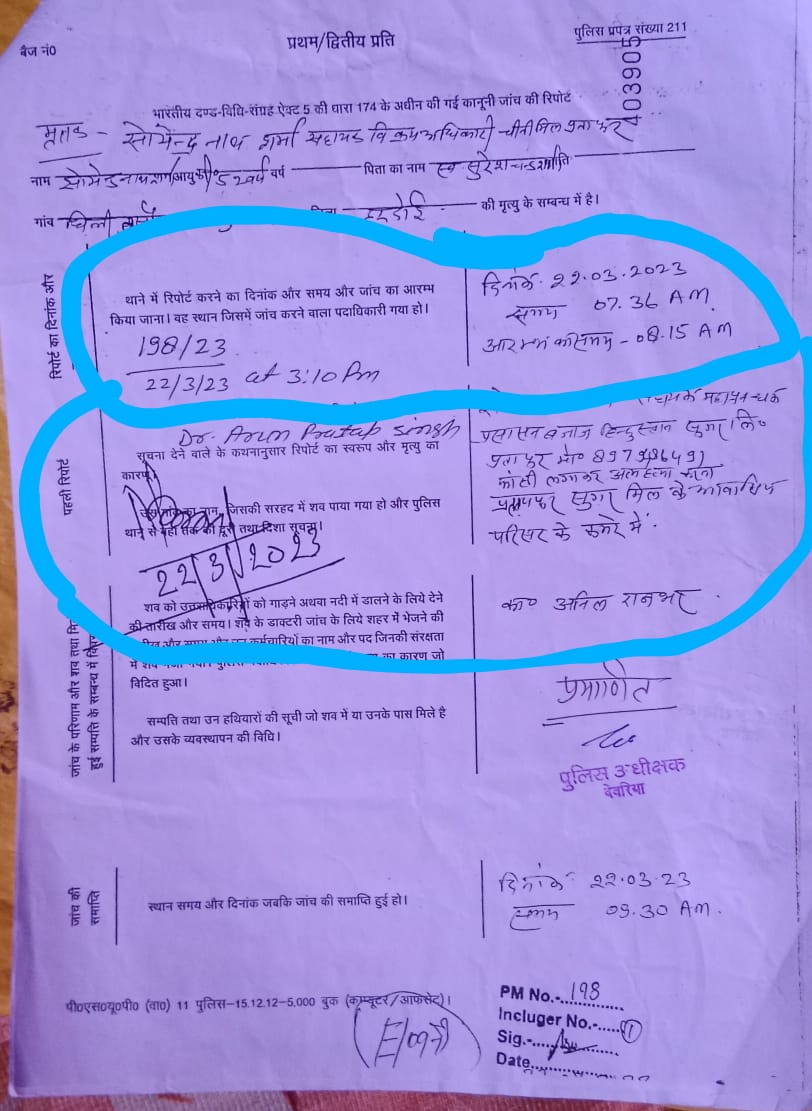 बैज नं0
प्रथम/द्वितीय प्रति
पुलिस प्रपत्र संख्या 211
03905
भारतीय दण्ड-विधि-संग्रह ऐक्ट 5 की धारा 174 के अधीन की गई कानूनी जांच की रिपोर्ट
मृतक - सोमेन्द्र नाथ शर्मा
नाम आयु वर्ष पिता का नाम स्व सुरेश चन्द्र जाति
गांव हरदोई की मृत्यु के सम्बन्ध में है।
रिपोर्ट का दिनांक और
थाने में रिपोर्ट करने का दिनांक और समय और जांच का आरम्भ
किया जाना। वह स्थान जिसमें जांच करने वाला पदाधिकारी गया हो।
198/23
22/3/23 at 3:10 Pm
दिनांक- 22.03.2023
समय 07.36 AM
आरम्भ का समय - 08.15 AM
पहली रिपोर्ट
Dr. Arun Pratap Singh
सूचना देने वाले के कथनानुसार रिपोर्ट का स्वरूप और मृत्यु का
कारण।
नाम, जिसकी सरहद में शव पाया गया हो और पुलिस
थाने से वहां तक की दूरी तथा दिशा सूचना।
22/3/2023
प्रशासन बजाज हिन्दुस्तान सुगर लि०
प्रतापपुर मो०
फांसी लगाकर आत्महत्या करना
प्रतापपुर सुगर मिल के आवासीय
परिसर के कमरे में.
जांच के परिणाम और शव तथा
हुई सम्पत्ति के सम्बन्ध में
शव को उत्तराधिकारियों को गाड़ने अथवा नदी में डालने के लिये देने
की तारीख और समय। शव के डाक्टरी जांच के लिये शहर में भेजने की
और कर्मचारियों का नाम और पद जिनकी संरक्षता
में का कारण जो
विदित हुआ।
का० अनिल राजभर
सम्पति तथा उन हथियारों की सूची जो शव में या उनके पास मिले है
और उसके व्यवस्थापन की विधि।
प्रमाणित
पुलिस उपाधीक्षक
देवरिया
जांच की
समाप्ति
स्थान समय और दिनांक जबकि जांच की समाप्ति हुई हो।
दिनांक- 22.03.23
समय 09.30 AM.
पी०एस०यू०पी० (वा०) 11 पुलिस-15.12.12-5,000 बुक (कम्प्यूटर/आफसेट)।
PM No.-198
Incluger No.-
Sig.-
Date